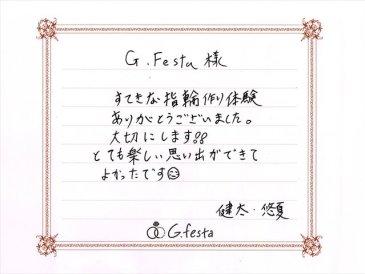 G.Festa 様
すてきな指輪作り体験
ありがとうございました。
大切にします!!
とても楽しい思い出ができて
よかったです☺
健太・悠夏
G.festa